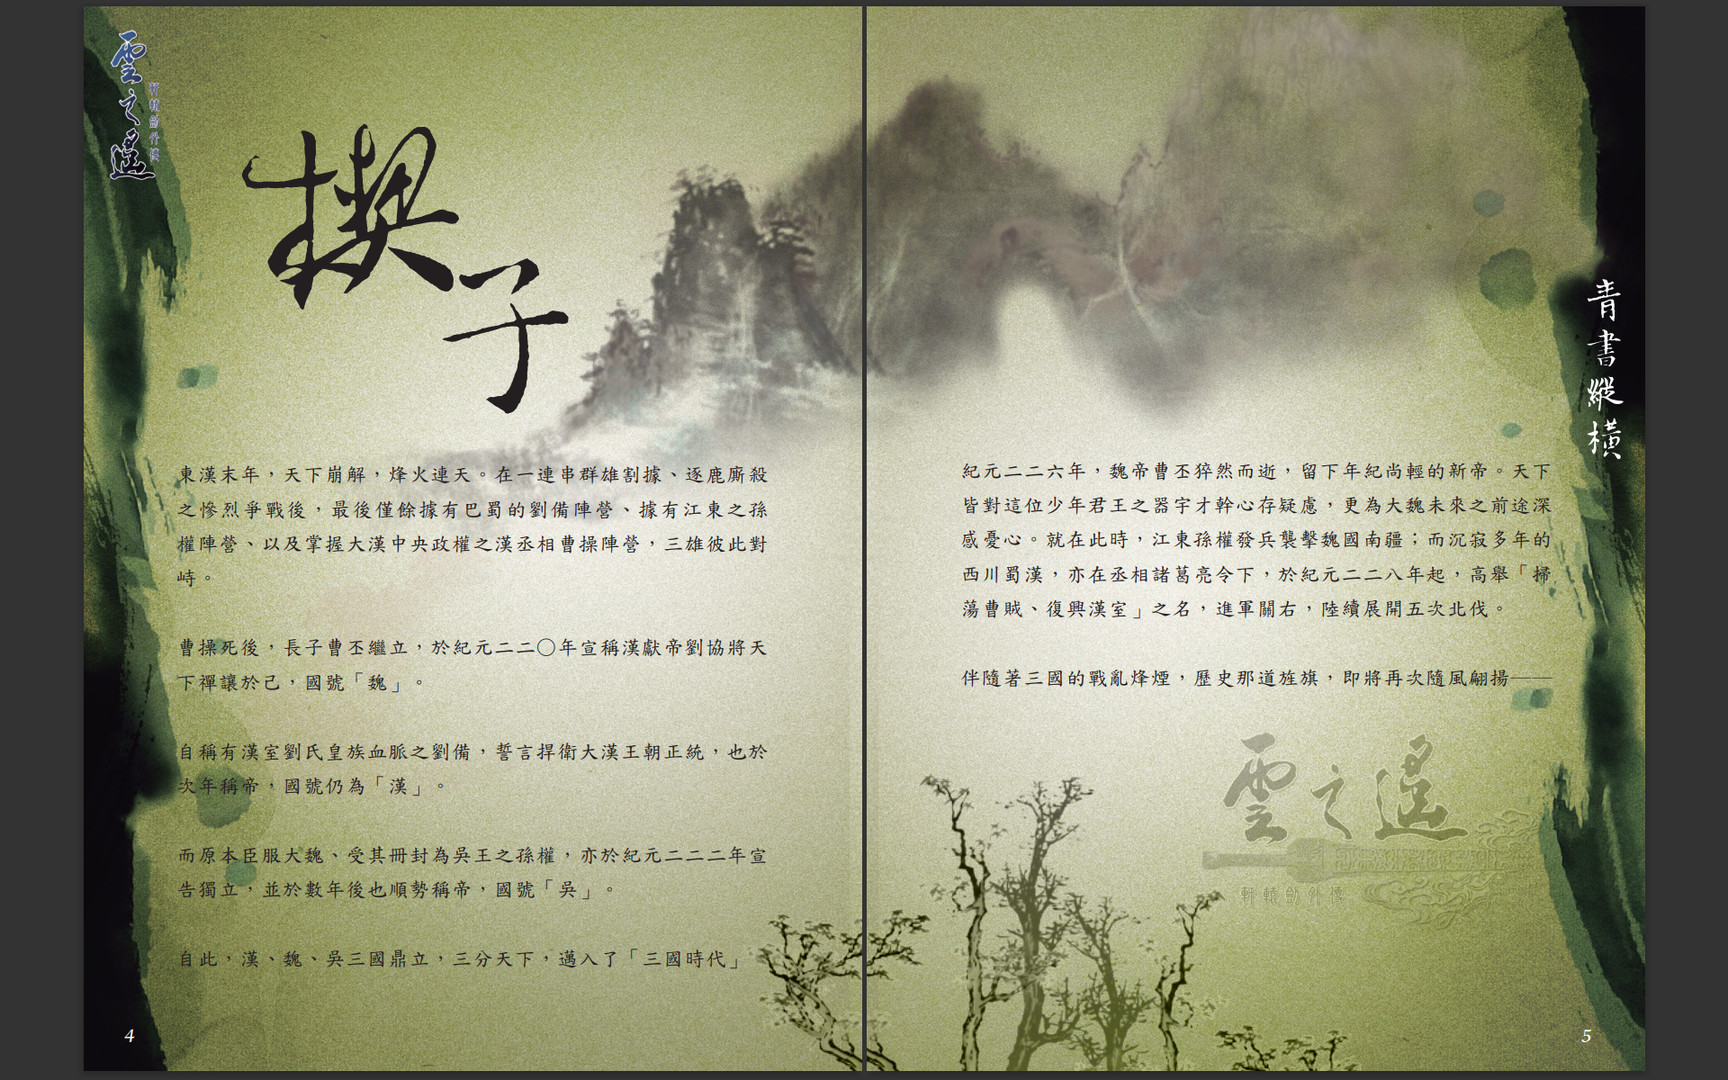 雲之遙
軒轅劍外傳
楔子
東漢末年，天下崩解，烽火連天。在一連串群雄割據、逐鹿廝殺
之慘烈爭戰後，最後僅餘據有巴蜀的劉備陣營、據有江東之孫
權陣營、以及掌握大漢中央政權之漢丞相曹操陣營，三雄彼此對
峙。
曹操死後，長子曹丕繼立，於紀元二二〇年宣稱漢獻帝劉協將天
下禪讓於己，國號「魏」。
自稱有漢室劉氏皇族血脈之劉備，誓言捍衛大漢王朝正統，也於
次年稱帝，國號仍為「漢」。
而原本臣服大魏、受其冊封為吳王之孫權，亦於紀元二二二年宣
告獨立，並於數年後也順勢稱帝，國號「吳」。
自此，漢、魏、吳三國鼎立，三分天下，邁入了「三國時代」
4
青書縱橫
紀元二二六年，魏帝曹丕猝然而逝，留下年紀尚輕的新帝。天下
皆對這位少年君王之器宇才幹心存疑慮，更為大魏未來之前途深
感憂心。就在此時，江東孫權發兵襲擊魏國南疆；而沉寂多年的
西川蜀漢，亦在丞相諸葛亮令下，於紀元二二八年起，高舉「掃
蕩曹賊、復興漢室」之名，進軍關右，陸續展開五次北伐。
伴隨著三國的戰亂烽煙，歷史那道旌旗，即將再次隨風翩揚──
雲之遙
軒轅劍外傳
5